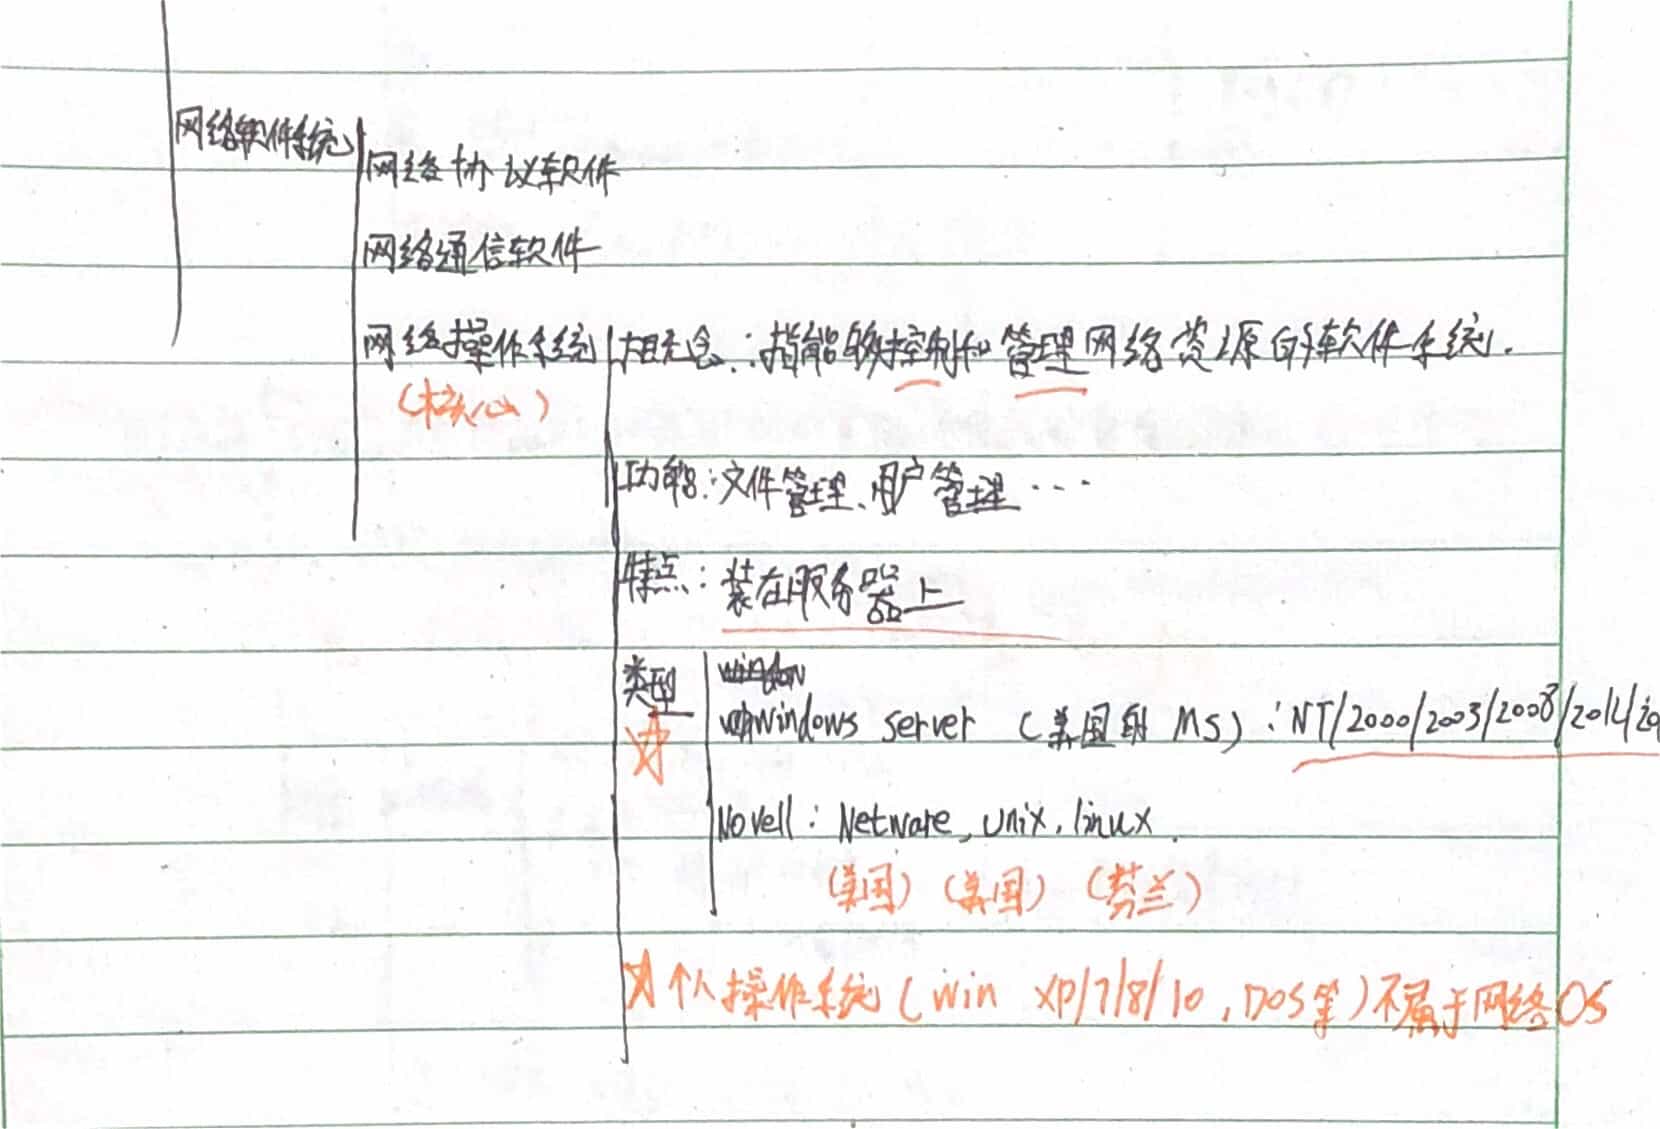 网络软件系统
网络协议软件
网络通信软件
网络操作系统 概念:指能够控制和管理网络资源的软件系统.
(核心)
功能:文件管理、用户管理 ···
特点:装在服务器上
类型
windows server (美国的 MS):NT/2000/2003/2008/
Novell: Netware, unix, linux.
(美国) (美国) (芬兰)
☆个人操作系统(win XP/7/8/10, DOS等)不属于网络OS